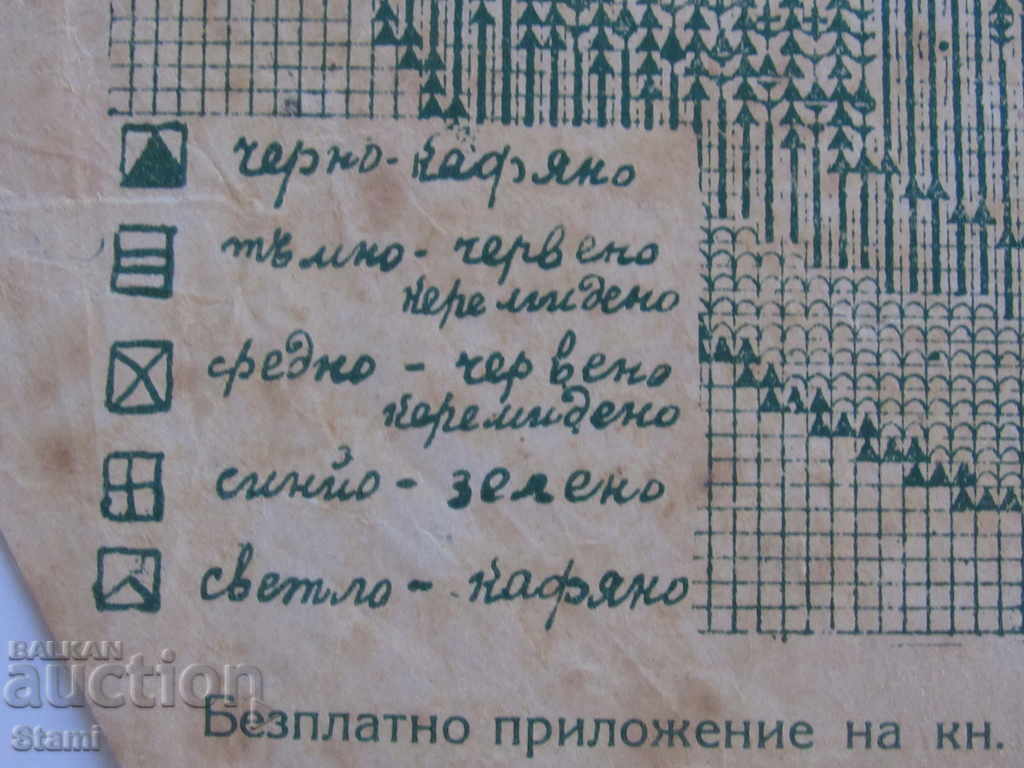 черно-кафяно
тъмно-червено
керемидено
средно - червено
керемидено
синйо - зелено
светло - кафяно
Безплатно приложение на кн.
BALKAN
auction
Stami